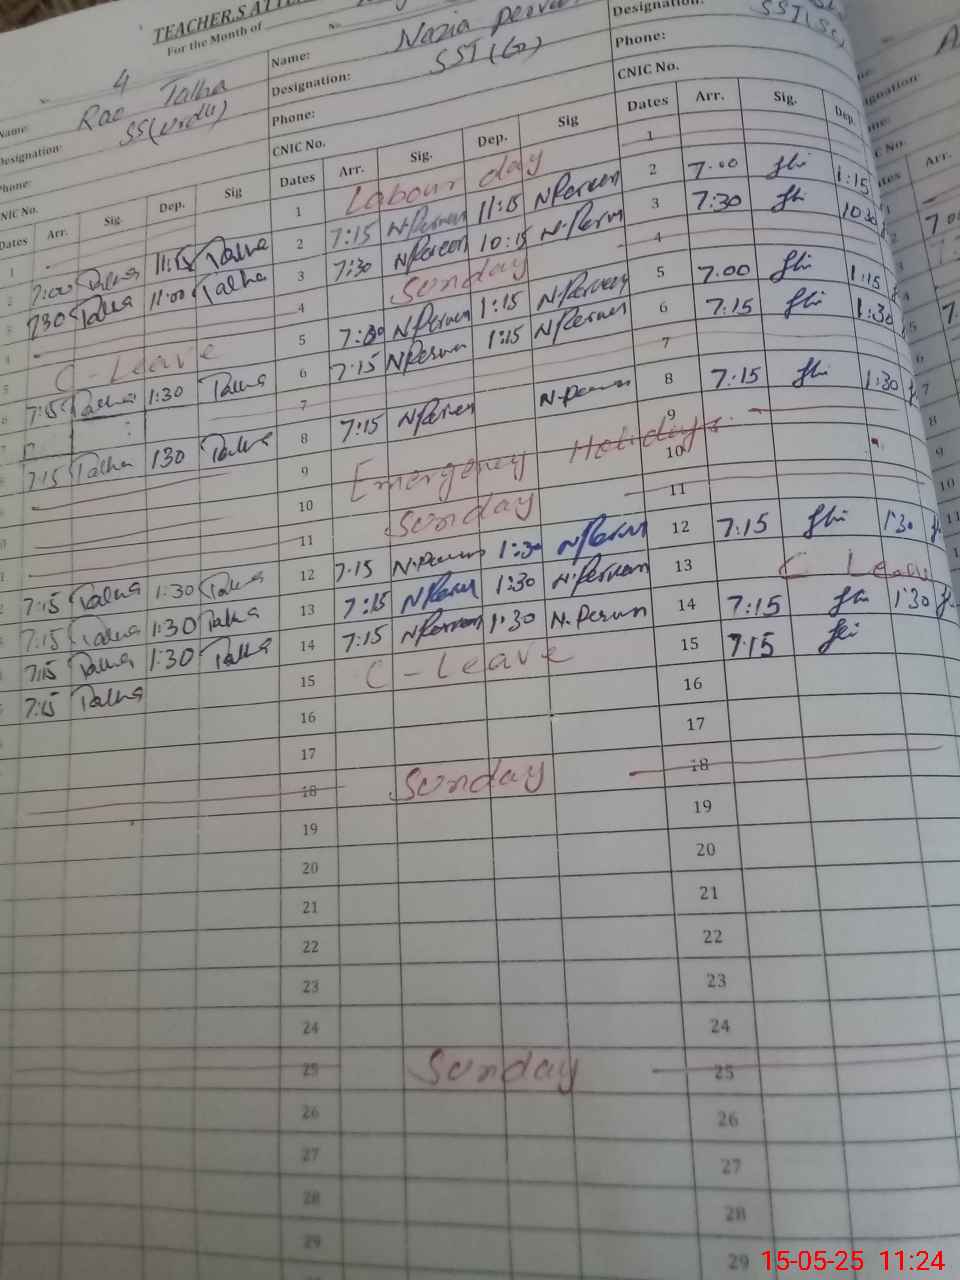 TEACHER,S
For the Month of
4
Name: Rao Talha
Designation: SS(Urdu)
Phone:
CNIC No.
Dates Arr. Sig. Dep. Sig
1
7:00 Talha 11:15 Talha
730 Talha 11:00 Talha
4
C-Leave
7:15 Talha 1:30 Talha
7:15 Talha 130 Talha
7:15 Talha 1:30 Talha
7:15 Talha 1:30 Talha
7:15 Talha 1:30 Talha
7:15 Talha
Name: Nazia
Designation: SST
Phone:
CNIC No.
Dates Arr. Sig. Dep. Sig
1 Labour day
2 7:15 N.Perven 11:15 N.Perven
3 7:30 N.Perven 10:15 N.Perven
4 Sunday
5 7:30 N.Perven 1:15 N.Perven
6 7:15 N.Perven 1:15 N.Perven
7
8 7:15 N.Perven N.Perven
9 Emergency Holidays
10
11 Sunday
12 7:15 N.Perven 1:30 N.Perven
13 7:15 N.Perven 1:30 N.Perven
14 7:15 N.Perven 1:30 N.Perven
15 C-Leave
16
17
18 Sunday
19
20
21
22
23
24
25 Sunday
26
27
28
29
Designation: SST(Sc)
Phone:
CNIC No.
Dates Arr. Sig. Dep.
1
2 7:00 1:15
3 7:30 1030
4
5 7:00 1:15
6 7:15 1:30
7
8 7:15 1:30
9
10
11
12 7:15 1:30
13 C Leave
14 7:15 1:30
15 7:15
16
17
18
19
20
21
22
23
24
25
26
27
28
29
Arr.
15-05-25 11:24